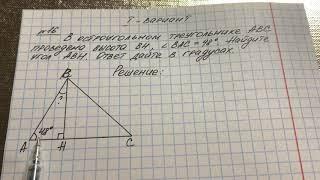 I - вариант
№16
В остроугольном треугольнике ABC
проведена высота BH, ∠BAC = 48°. Найдите
угол ABH. Ответ дайте в градусах.
Решение:
B
?
48°
A H C